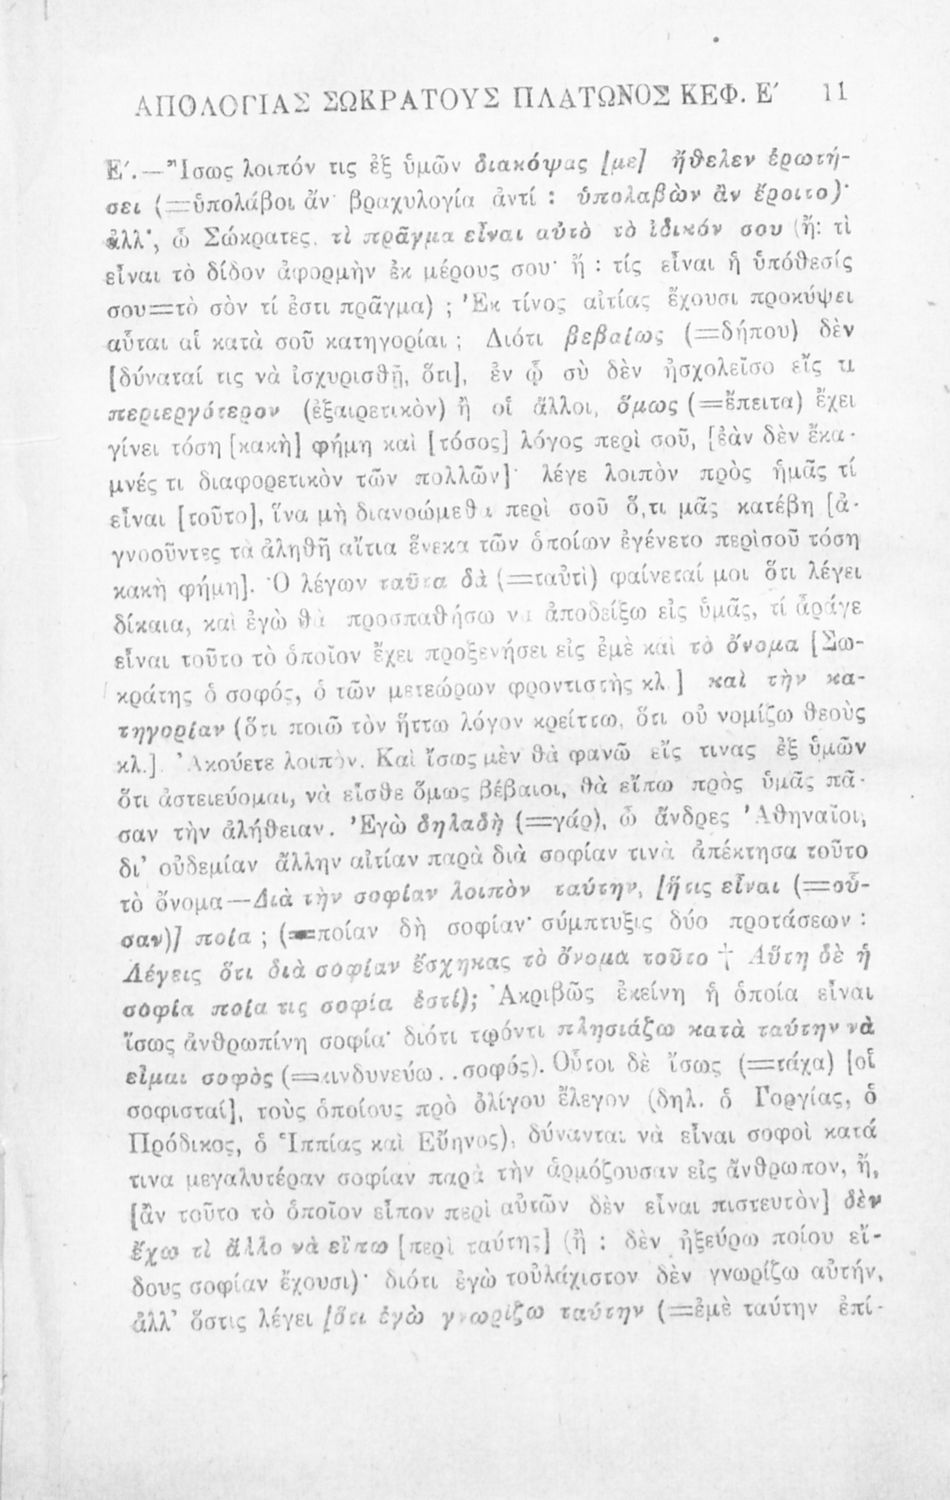 ΑΠΟΛΟΓΙΑΣ ΣΩΚΡΑΤΟΥΣ ΠΛΑΤΩΝΟΣ ΚΕΦ. Ε΄ 11
Ε΄.—Ἴσως λοιπόν τις ἐξ ὑμῶν διακόψας [με] ἤθελεν ἐρωτή-
σει (=ὑπολάβοι ἄν· βραχυλογία ἀντί : ὑπολαβὼν ἂν ἔροιτο)·
ἀλλ', ὦ Σώκρατες, τὶ πρᾶγμα εἶναι αὐτὸ τὸ ἰδικόν σου (ἤ: τὶ
εἶναι τὸ δίδον ἀφορμὴν ἐκ μέρους σου· ἤ : τίς εἶναι ἡ ὑπόθεσίς
σου=τὸ σὸν τί ἐστι πρᾶγμα) ; Ἐκ τίνος αἰτίας ἔχουσι προκύψει
αὗται αἱ κατὰ σοῦ κατηγορίαι ; Διότι βεβαίως (=δήπου) δὲν
[δύναταί τις νὰ ἰσχυρισθῇ, ὅτι], ἐν ᾧ σὺ δὲν ἠσχολεῖσο εἴς τι
περιεργότερον (ἐξαιρετικὸν) ἢ οἱ ἄλλοι, ὅμως (=ἔπειτα) ἔχει
γίνει τόση [κακὴ] φήμη καὶ [τόσος] λόγος περὶ σοῦ, [ἐὰν δὲν ἔκα-
μνές τι διαφορετικὸν τῶν πολλῶν]· λέγε λοιπὸν πρὸς ἡμᾶς τί
εἶναι [τοῦτο], ἵνα μὴ διανοώμεθα περὶ σοῦ ὅ,τι μᾶς κατέβη [ἀ-
γνοοῦντες τὰ ἀληθῆ αἴτια ἕνεκα τῶν ὁποίων ἐγένετο περὶσοῦ τόση
κακὴ φήμη]. Ὁ λέγων ταῦτα δὰ (=ταῦτὶ) φαίνεταί μοι ὅτι λέγει
δίκαια, καὶ ἐγὼ θὰ προσπαθήσω νὰ ἀποδείξω εἰς ὑμᾶς, τί ἆράγε
εἶναι τοῦτο τὸ ὁποῖον ἔχει προξενήσει εἰς ἐμὲ καὶ τὸ ὄνομα [Σω-
κράτης ὁ σοφός, ὁ τῶν μετεώρων φροντιστὴς κλ.] καὶ τὴν κα-
τηγορίαν (ὅτι ποιῶ τὸν ἥττω λόγον κρείττω, ὅτι οὐ νομίζω θεοὺς
κλ.]. Ἀκούετε λοιπὸν. Καὶ ἴσως μὲν θὰ φανῶ εἴς τινας ἐξ ὑμῶν
ὅτι ἀστειεύομαι, νὰ εἶσθε ὅμως βέβαιοι, θὰ εἴπω πρὸς ὑμᾶς πᾶ-
σαν τὴν ἀλήθειαν. Ἐγὼ δηλαδὴ (=γάρ), ὦ ἄνδρες Ἀθηναῖοι,
δι' οὐδεμίαν ἄλλην αἰτίαν παρὰ διὰ σοφίαν τινὰ ἀπέκτησα τοῦτο
τὸ ὄνομα—Διὰ τὴν σοφίαν λοιπὸν ταύτην, [ἥτις εἶναι (=οὖ-
σαν)] ποία ; (=ποίαν δὴ σοφίαν· σύμπτυξις δύο προτάσεων :
Λέγεις ὅτι διὰ σοφίαν ἔσχηκας τὸ ὄνομα τοῦτο † Αὕτη δὲ ἡ
σοφία ποία τις σοφία ἐστί); Ἀκριβῶς ἐκείνη ἡ ὁποία εἶναι
ἴσως ἀνθρωπίνη σοφία· διότι τῳόντι πλησιάζω κατὰ ταύτην νὰ
εἶμαι σοφὸς (=κινδυνεύω..σοφός). Οὗτοι δὲ ἴσως (=τάχα) [οἱ
σοφισταί], τοὺς ὁποίους πρὸ ὀλίγου ἔλεγον (δηλ. ὁ Γοργίας, ὁ
Πρόδικος, ὁ Ἱππίας καὶ Εὔηνος), δύνανται νὰ εἶναι σοφοὶ κατά
τινα μεγαλυτέραν σοφίαν παρὰ τὴν ἁρμόζουσαν εἰς ἄνθρωπον, ἤ,
[ἂν τοῦτο τὸ ὁποῖον εἶπον περὶ αὐτῶν δὲν εἶναι πιστευτὸν] δὲν
ἔχω τὶ ἄλλο νὰ εἴπω [περὶ ταύτης] (ἢ : δὲν ἠξεύρω ποίου εἴ-
δους σοφίαν ἔχουσι)· διότι ἐγὼ τοὐλάχιστον δὲν γνωρίζω αὐτήν,
ἀλλ' ὅστις λέγει [ὅτι ἐγὼ γνωρίζω ταύτην (=ἐμὲ ταύτην ἐπί-